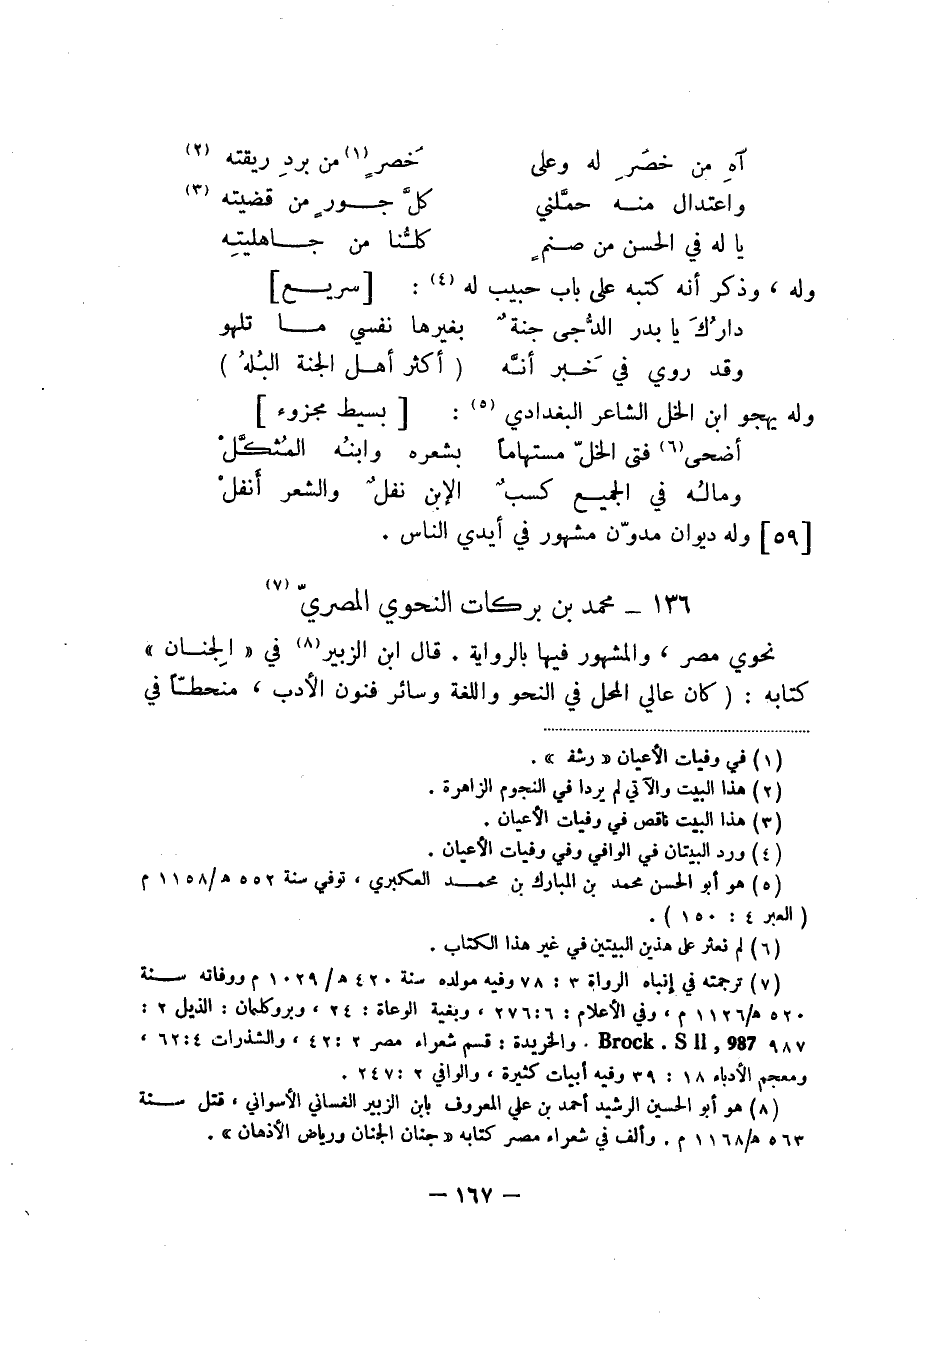 آهِ من خصَرٍ له وعلى    خَصرٍ(١) من بردِ ريقته (٢)
واعتدال منه حمَّلني    كلَّ جورٍ من قضيته (٣)
يا له في الحسن من صنمٍ    كلُّنا من جاهليتِه
وله ، وذكر أنه كتبه على باب حبيب له (٤) :    [سريع]
دارُكَ يا بدر الدُّجى جنةٌ    بغيرها نفسي ما تلهو
وقد روي في خَبر أنَّه    ( أكثر أهل الجنة البُلهُ )
وله يهجو ابن الخل الشاعر البغدادي (٥) :    [ بسيط مجزوء ]
أضحى(٦) فتى الخلّ مستهاماً    بشعره وابنُه المُثكَّلْ
ومالُه في الجميع كسبٌ    الإبن نفلٌ والشعر أَنفلْ
[٥٩] وله ديوان مدوّن مشهور في أيدي الناس .
١٣٦ ــ محمد بن بركات النحوي المصريّ (٧)
نحوي مصر ، والمشهور فيها بالرواية . قال ابن الزبير(٨) في « الجِنان »
كتابه : ( كان عالي المحل في النحو واللغة وسائر فنون الأدب ، منحطّاً في
(١) في وفيات الأعيان « رشف » .
(٢) هذا البيت والآتي لم يردا في النجوم الزاهرة .
(٣) هذا البيت ناقص في وفيات الأعيان .
(٤) ورد البيتان في الوافي وفي وفيات الأعيان .
(٥) هو أبو الحسن محمد بن المبارك بن محمد العكبري ، توفي سنة ٥٥٢ هـ/١١٥٨ م
( العبر ٤ : ١٥٠ ) .
(٦) لم نعثر على هذين البيتين في غير هذا الكتاب .
(٧) ترجمته في إنباه الرواة ٣ : ٧٨ وفيه مولده سنة ٤٢٠ هـ/ ١٠٢٩ م ووفاته سنة
٥٢٠ هـ/١١٢٦ م ، وفي الأعلام : ٦:٢٧٦ ، وبغية الوعاة : ٢٤ ، وبروكلمان : الذيل ٢ :
٩٨٧ Brock . S II , 987 . والخريدة : قسم شعراء مصر ٢ :٤٢ ، والشذرات ٤:٦٢ ،
ومعجم الأدباء ١٨ : ٣٩ وفيه أبيات كثيرة ، والوافي ٢ :٢٤٧ .
(٨) هو أبو الحسين الرشيد أحمد بن علي المعروف بابن الزبير الغساني الأسواني ، قتل سنة
٥٦٣ هـ/١١٦٨ م . وألف في شعراء مصر كتابه « جنان الجنان ورياض الأذهان » .
– ١٦٧ –